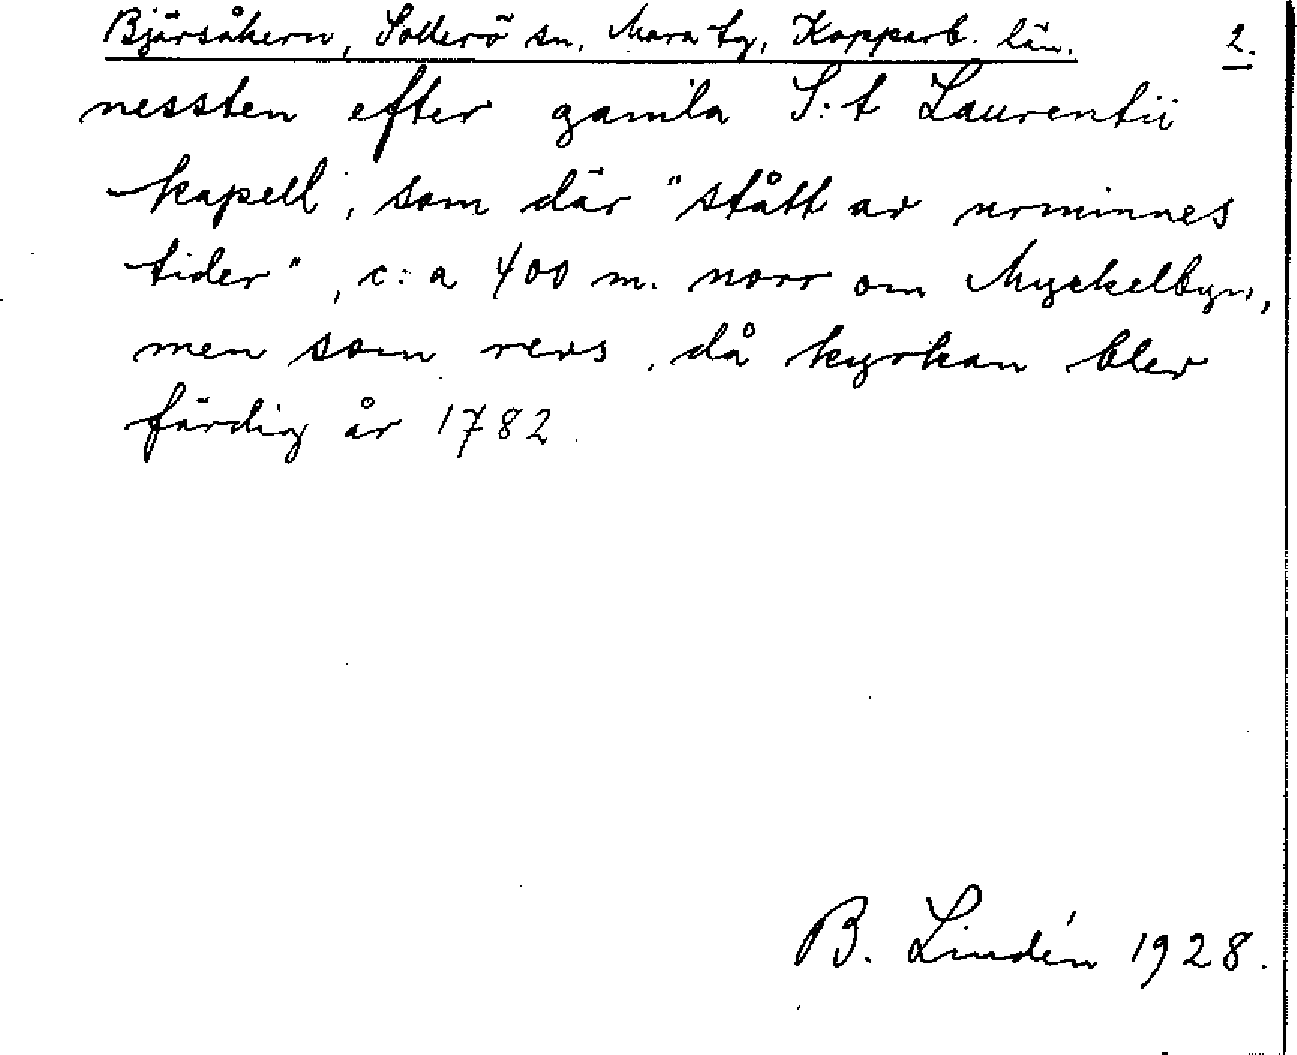 Bjärsåkern, Sollerö sn, Mora tg, Kopparb. län. 2.
nessten efter gamla S:t Laurentii
kapell, som där "stått av urminnes
tider", c:a 400 m. norr om Myckelbyn,
men som revs, då kyrkan blev
färdig år 1782.
B. Lindén 1928.